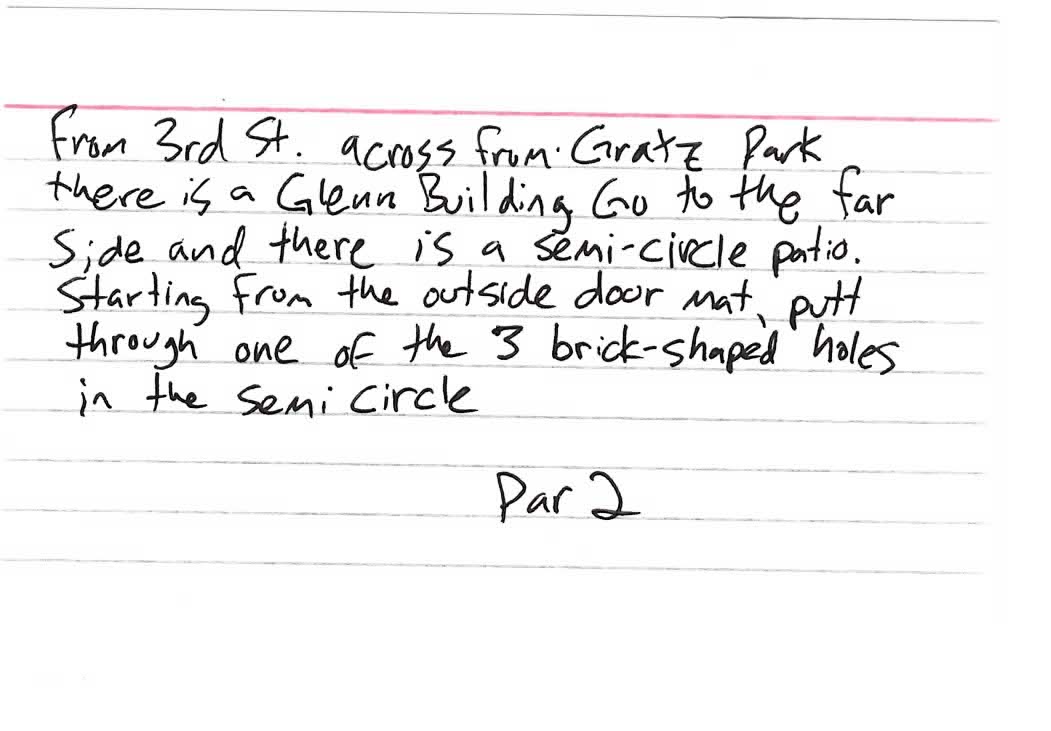 From 3rd St. across from Gratz Park
there is a Glenn Building Go to the far
side and there is a semi-circle patio.
Starting from the outside door mat, putt
through one of the 3 brick-shaped holes
in the semi circle
Par 2